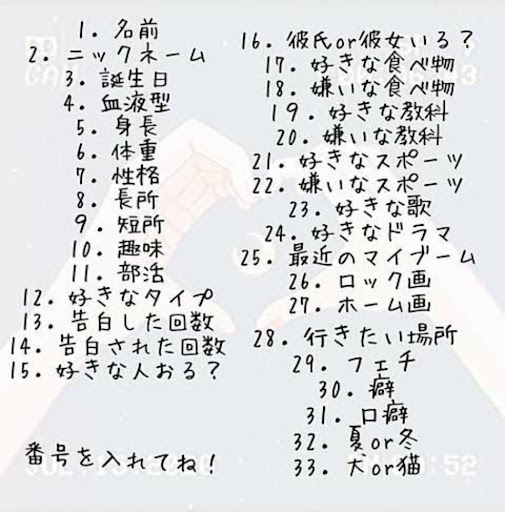 1. 名前
2. ニックネーム
3. 誕生日
4. 血液型
5. 身長
6. 体重
7. 性格
8. 長所
9. 短所
10. 趣味
11. 部活
12. 好きなタイプ
13. 告白した回数
14. 告白された回数
15. 好きな人おる？
番号を入れてね！
16. 彼氏or彼女いる？
17. 好きな食べ物
18. 嫌いな食べ物
19. 好きな教科
20. 嫌いな教科
21. 好きなスポーツ
22. 嫌いなスポーツ
23. 好きな歌
24. 好きなドラマ
25. 最近のマイブーム
26. ロック画
27. ホーム画
28. 行きたい場所
29. フェチ
30. 癖
31. 口癖
32. 夏or冬
33. 犬or猫